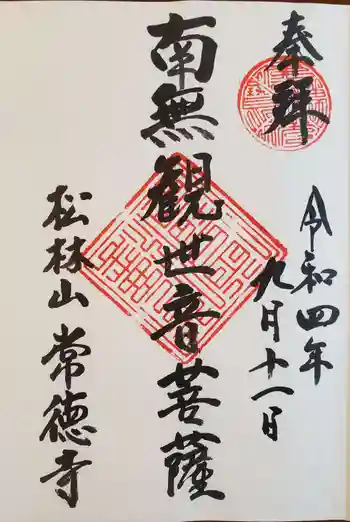 奉拝
令和四年
九月十一日
南無観世音菩薩
松林山常徳寺